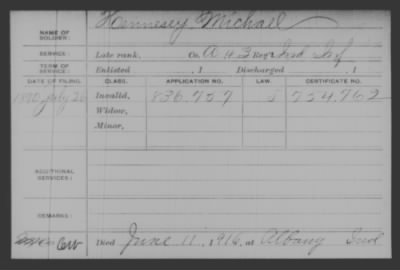 Hennesey Michael
NAME OF SOLDIER:
SERVICE: Late rank, Co. A 43 Reg't Ind Inf
TERM OF SERVICE: Enlisted , 1 Discharged , 1
DATE OF FILING. CLASS. APPLICATION NO. LAW. CERTIFICATE NO.
1890 July 26 Invalid, 836.757 754.762
Widow,
Minor,
ADDITIONAL SERVICES:
REMARKS:
CW Died June 11, 1916, at Albany Ind